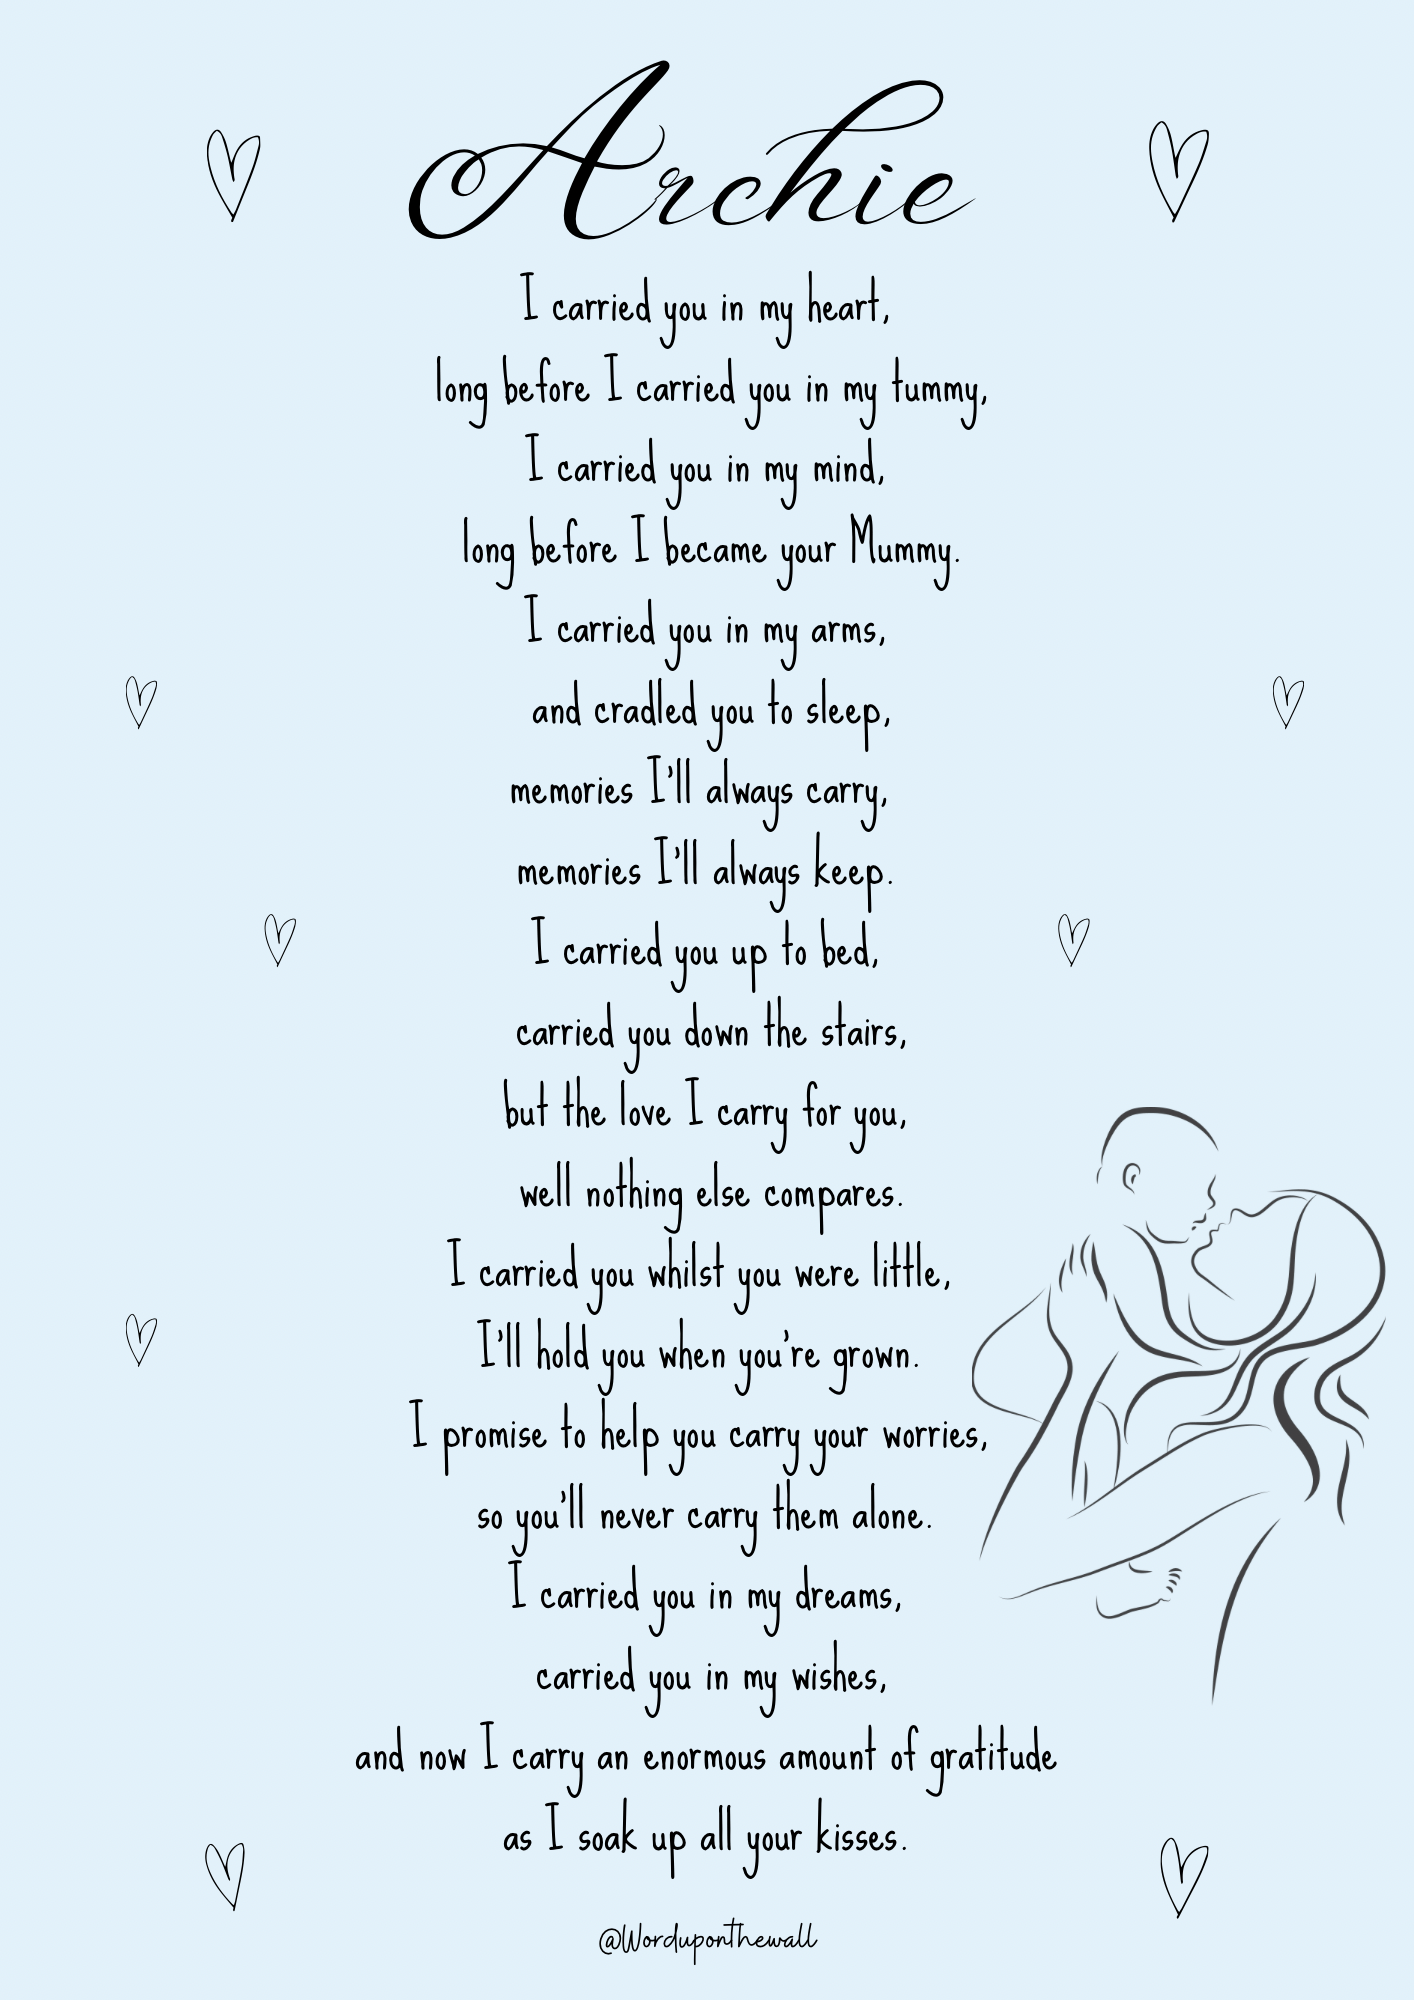 Archie
I carried you in my heart,
long before I carried you in my tummy,
I carried you in my mind,
long before I became your Mummy.
I carried you in my arms,
and cradled you to sleep,
memories I'll always carry,
memories I'll always keep.
I carried you up to bed,
carried you down the stairs,
but the love I carry for you,
well nothing else compares.
I carried you whilst you were little,
I'll hold you when you're grown.
I promise to help you carry your worries,
so you'll never carry them alone.
I carried you in my dreams,
carried you in my wishes,
and now I carry an enormous amount of gratitude
as I soak up all your kisses.
@Worduponthewall